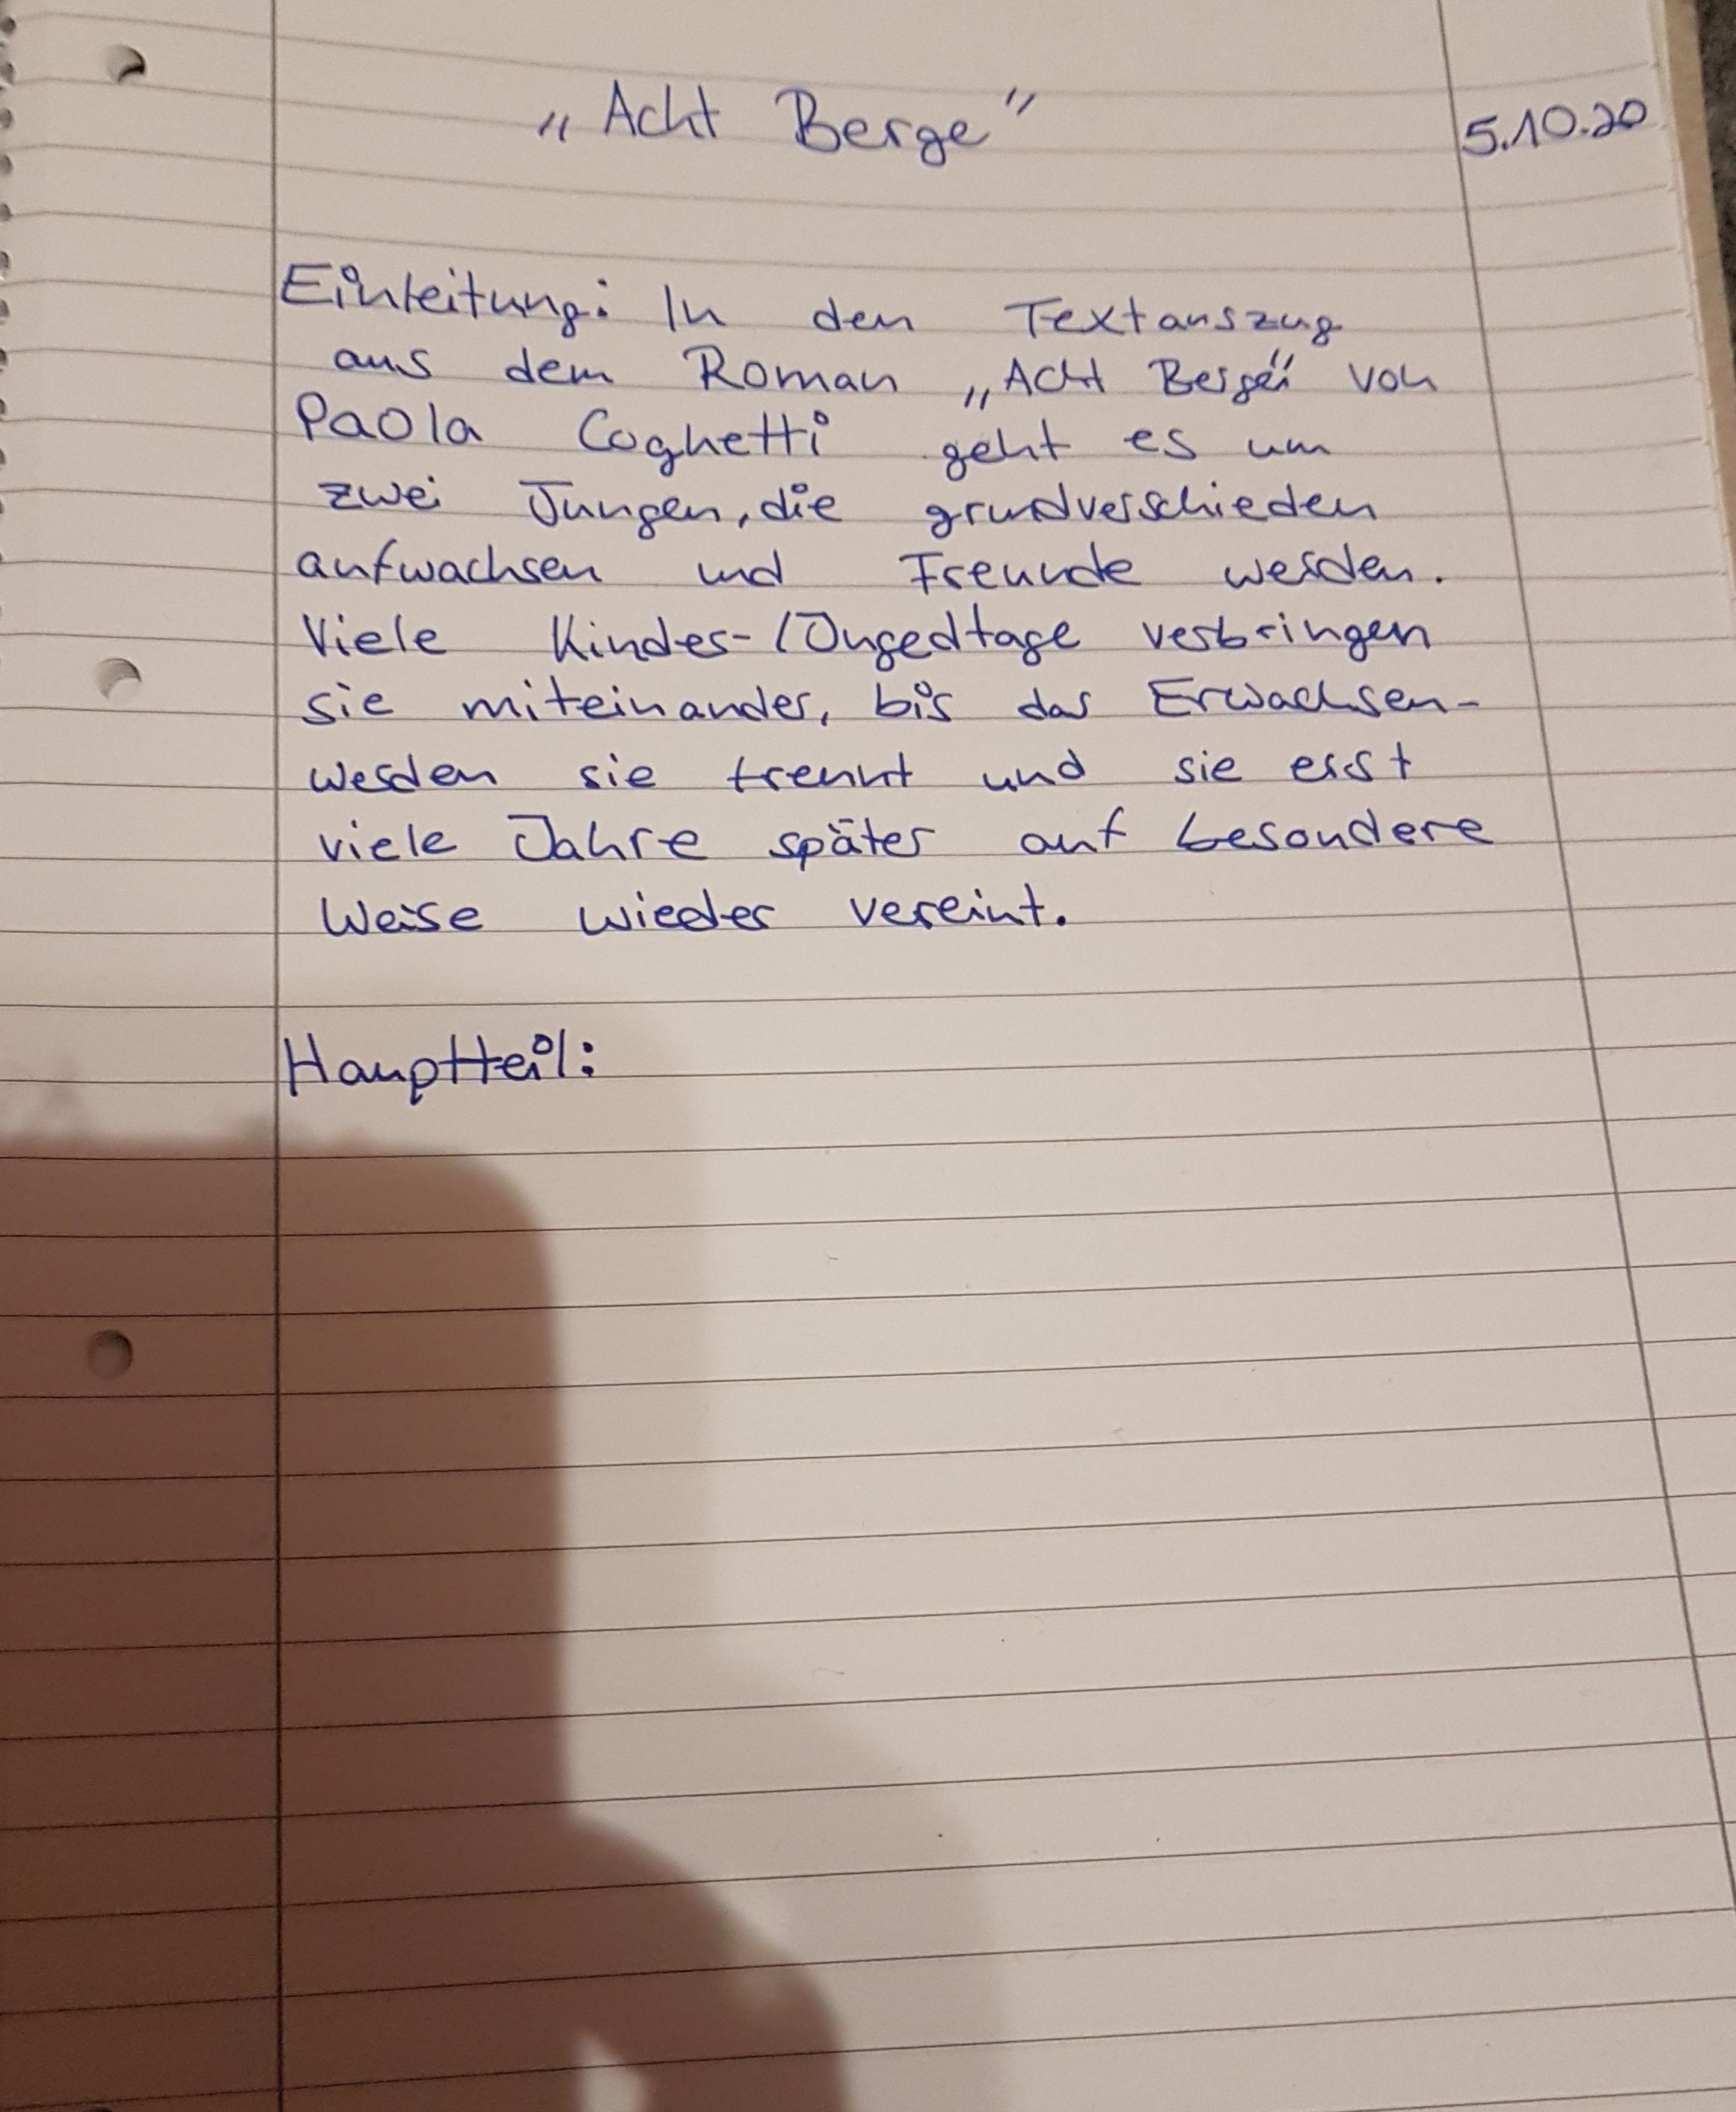 „Acht Berge"
5.10.20
Einleitung: In den Textauszug
aus dem Roman „Acht Berge" von
Paola Coghetti geht es um
zwei Jungen, die grundverschieden
aufwachsen und Freunde werden.
Viele Kinder-/Jugedtage verbringen
sie miteinander, bis das Erwachsen-
werden sie trennt und sie erst
viele Jahre später auf besondere
Weise wieder vereint.
Hauptteil: